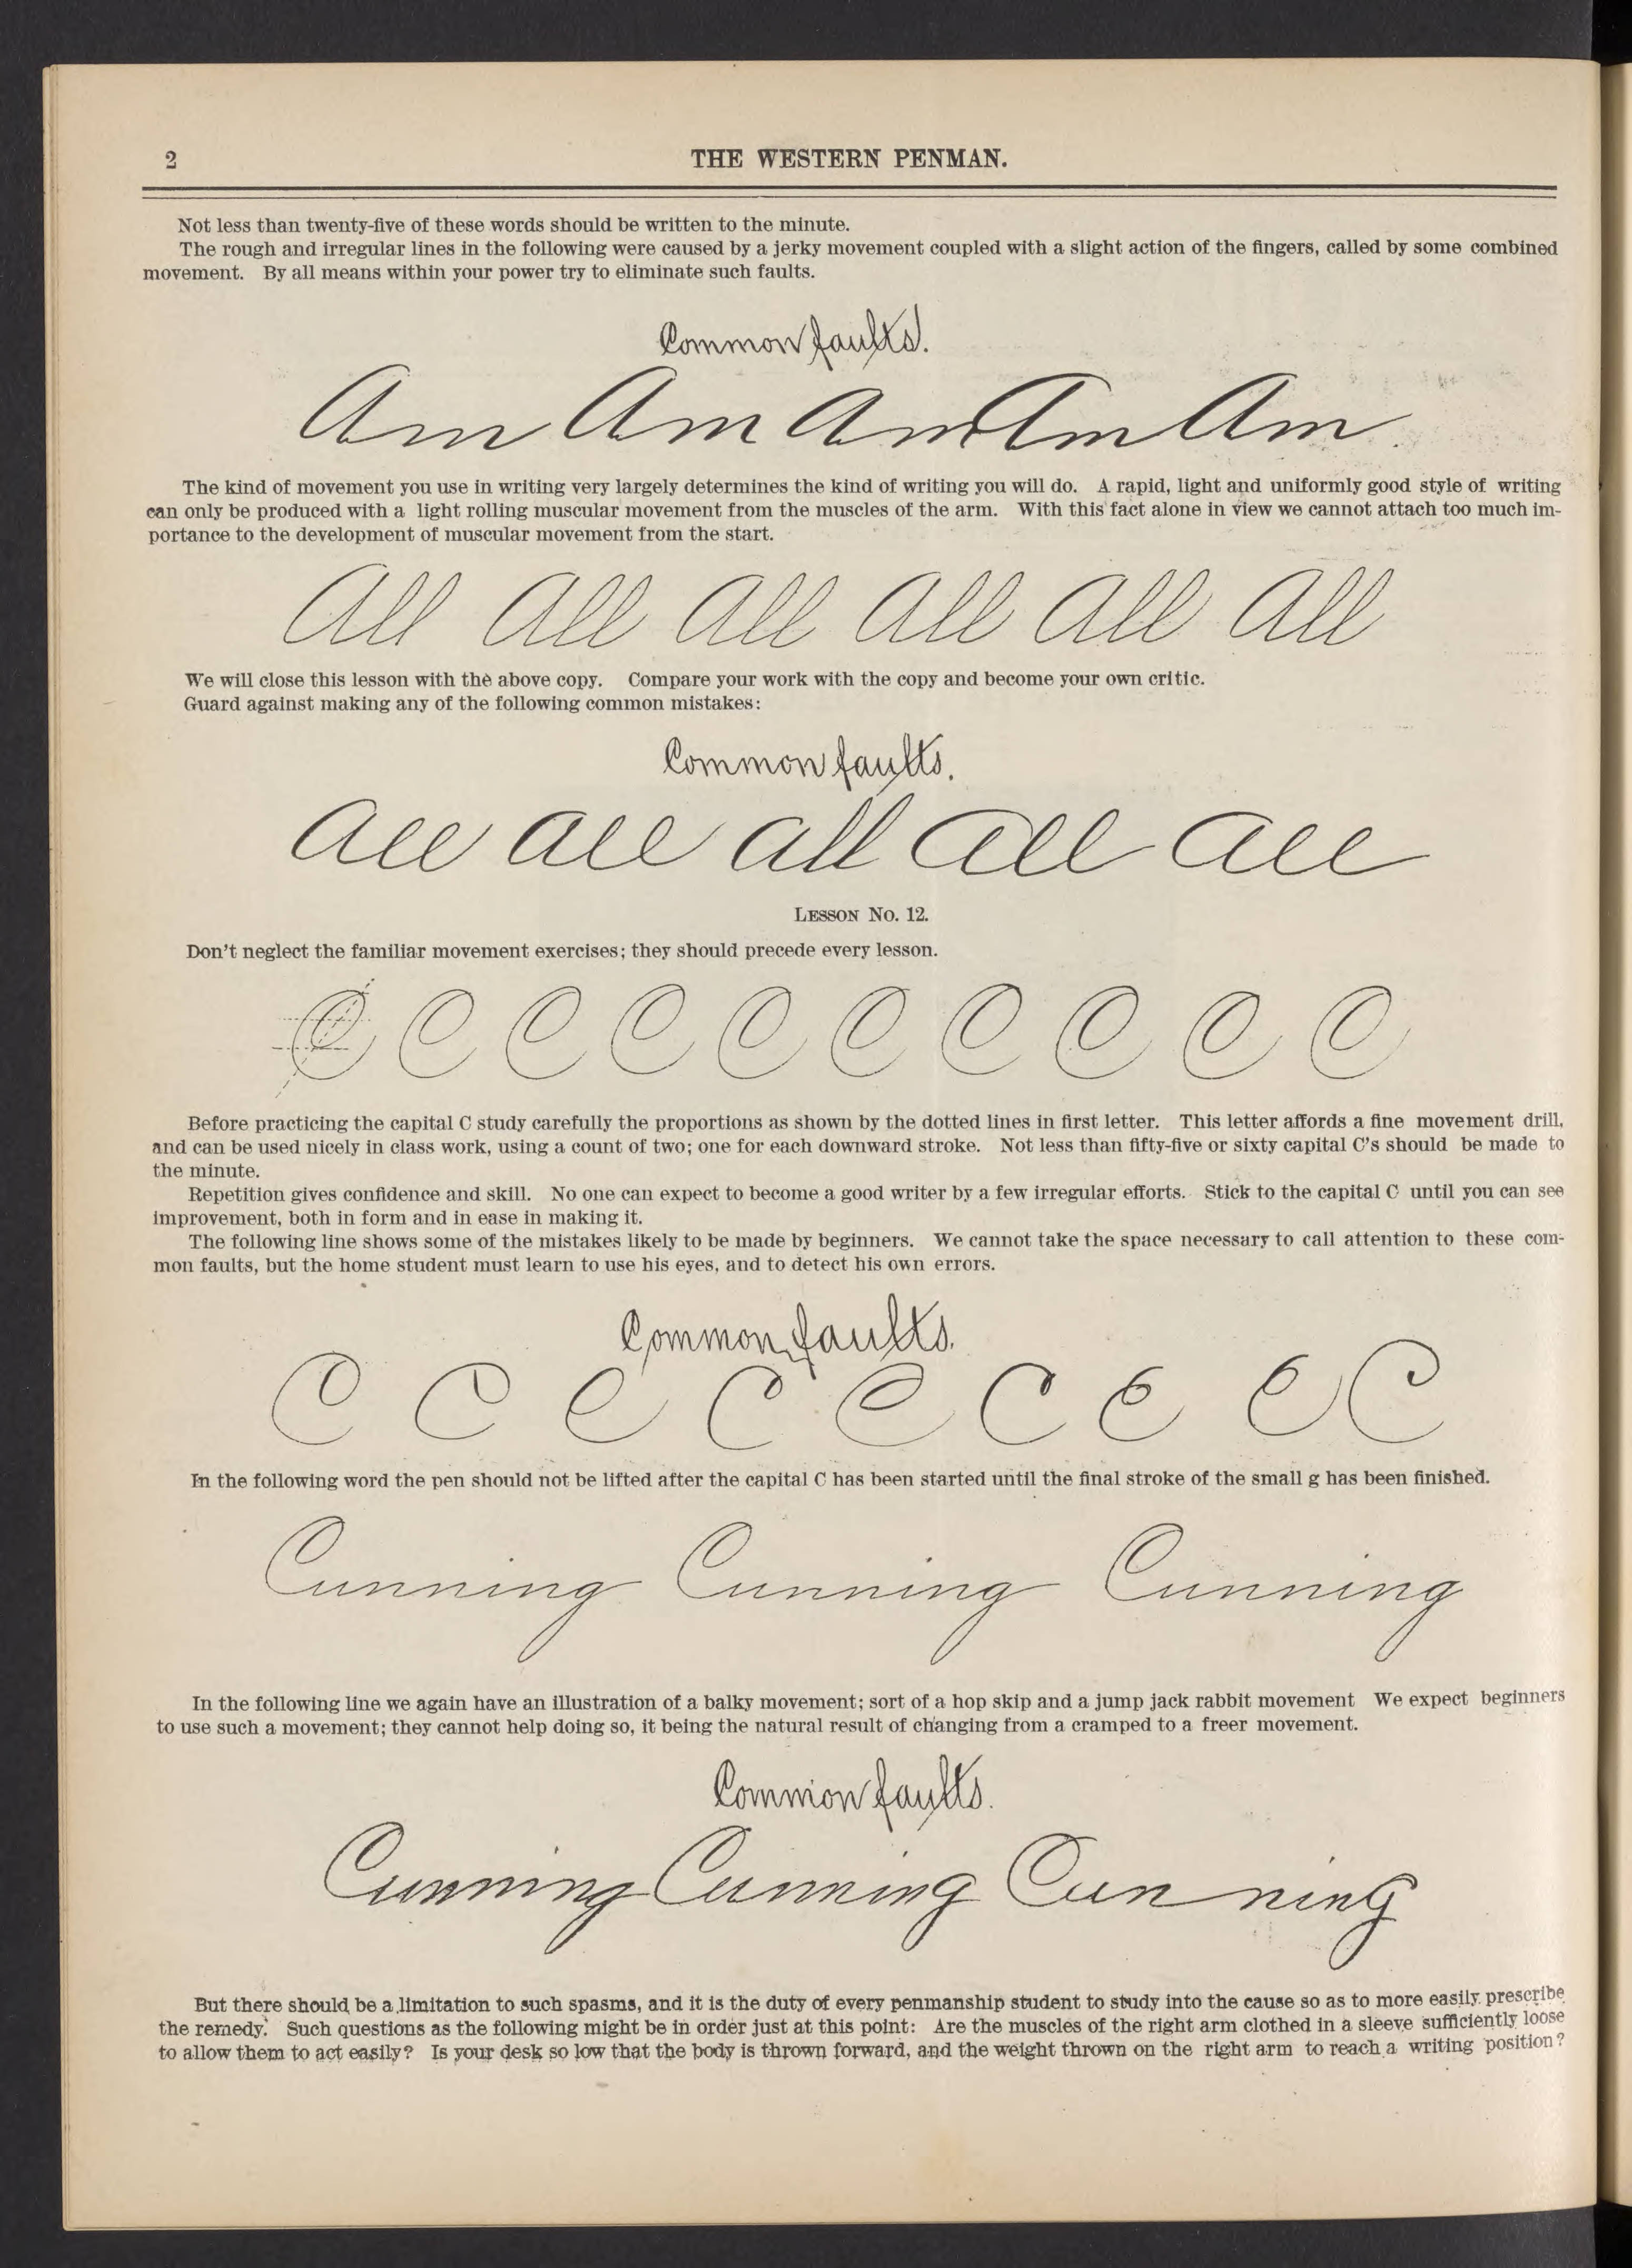 2
THE WESTERN PENMAN.
Not less than twenty-five of these words should be written to the minute.
The rough and irregular lines in the following were caused by a jerky movement coupled with a slight action of the fingers, called by some combined
movement. By all means within your power try to eliminate such faults.
Common faults.
Am Am Am Am Am
The kind of movement you use in writing very largely determines the kind of writing you will do. A rapid, light and uniformly good style of writing
can only be produced with a light rolling muscular movement from the muscles of the arm. With this fact alone in view we cannot attach too much im-
portance to the development of muscular movement from the start.
All All All All All All
We will close this lesson with the above copy. Compare your work with the copy and become your own critic.
Guard against making any of the following common mistakes:
Common faults.
All All All All All
LESSON NO. 12.
Don't neglect the familiar movement exercises; they should precede every lesson.
C C C C C C C C C C
Before practicing the capital C study carefully the proportions as shown by the dotted lines in first letter. This letter affords a fine movement drill,
and can be used nicely in class work, using a count of two; one for each downward stroke. Not less than fifty-five or sixty capital C's should be made to
the minute.
Repetition gives confidence and skill. No one can expect to become a good writer by a few irregular efforts. Stick to the capital C until you can see
improvement, both in form and in ease in making it.
The following line shows some of the mistakes likely to be made by beginners. We cannot take the space necessary to call attention to these com-
mon faults, but the home student must learn to use his eyes, and to detect his own errors.
Common faults.
C C C C C C C C C
In the following word the pen should not be lifted after the capital C has been started until the final stroke of the small g has been finished.
Cunning Cunning Cunning
In the following line we again have an illustration of a balky movement; sort of a hop skip and a jump jack rabbit movement We expect beginners
to use such a movement; they cannot help doing so, it being the natural result of changing from a cramped to a freer movement.
Common faults.
Cunning Cunning Cunning
But there should be a limitation to such spasms, and it is the duty of every penmanship student to study into the cause so as to more easily prescribe
the remedy. Such questions as the following might be in order just at this point: Are the muscles of the right arm clothed in a sleeve sufficiently loose
to allow them to act easily? Is your desk so low that the body is thrown forward, and the weight thrown on the right arm to reach a writing position?